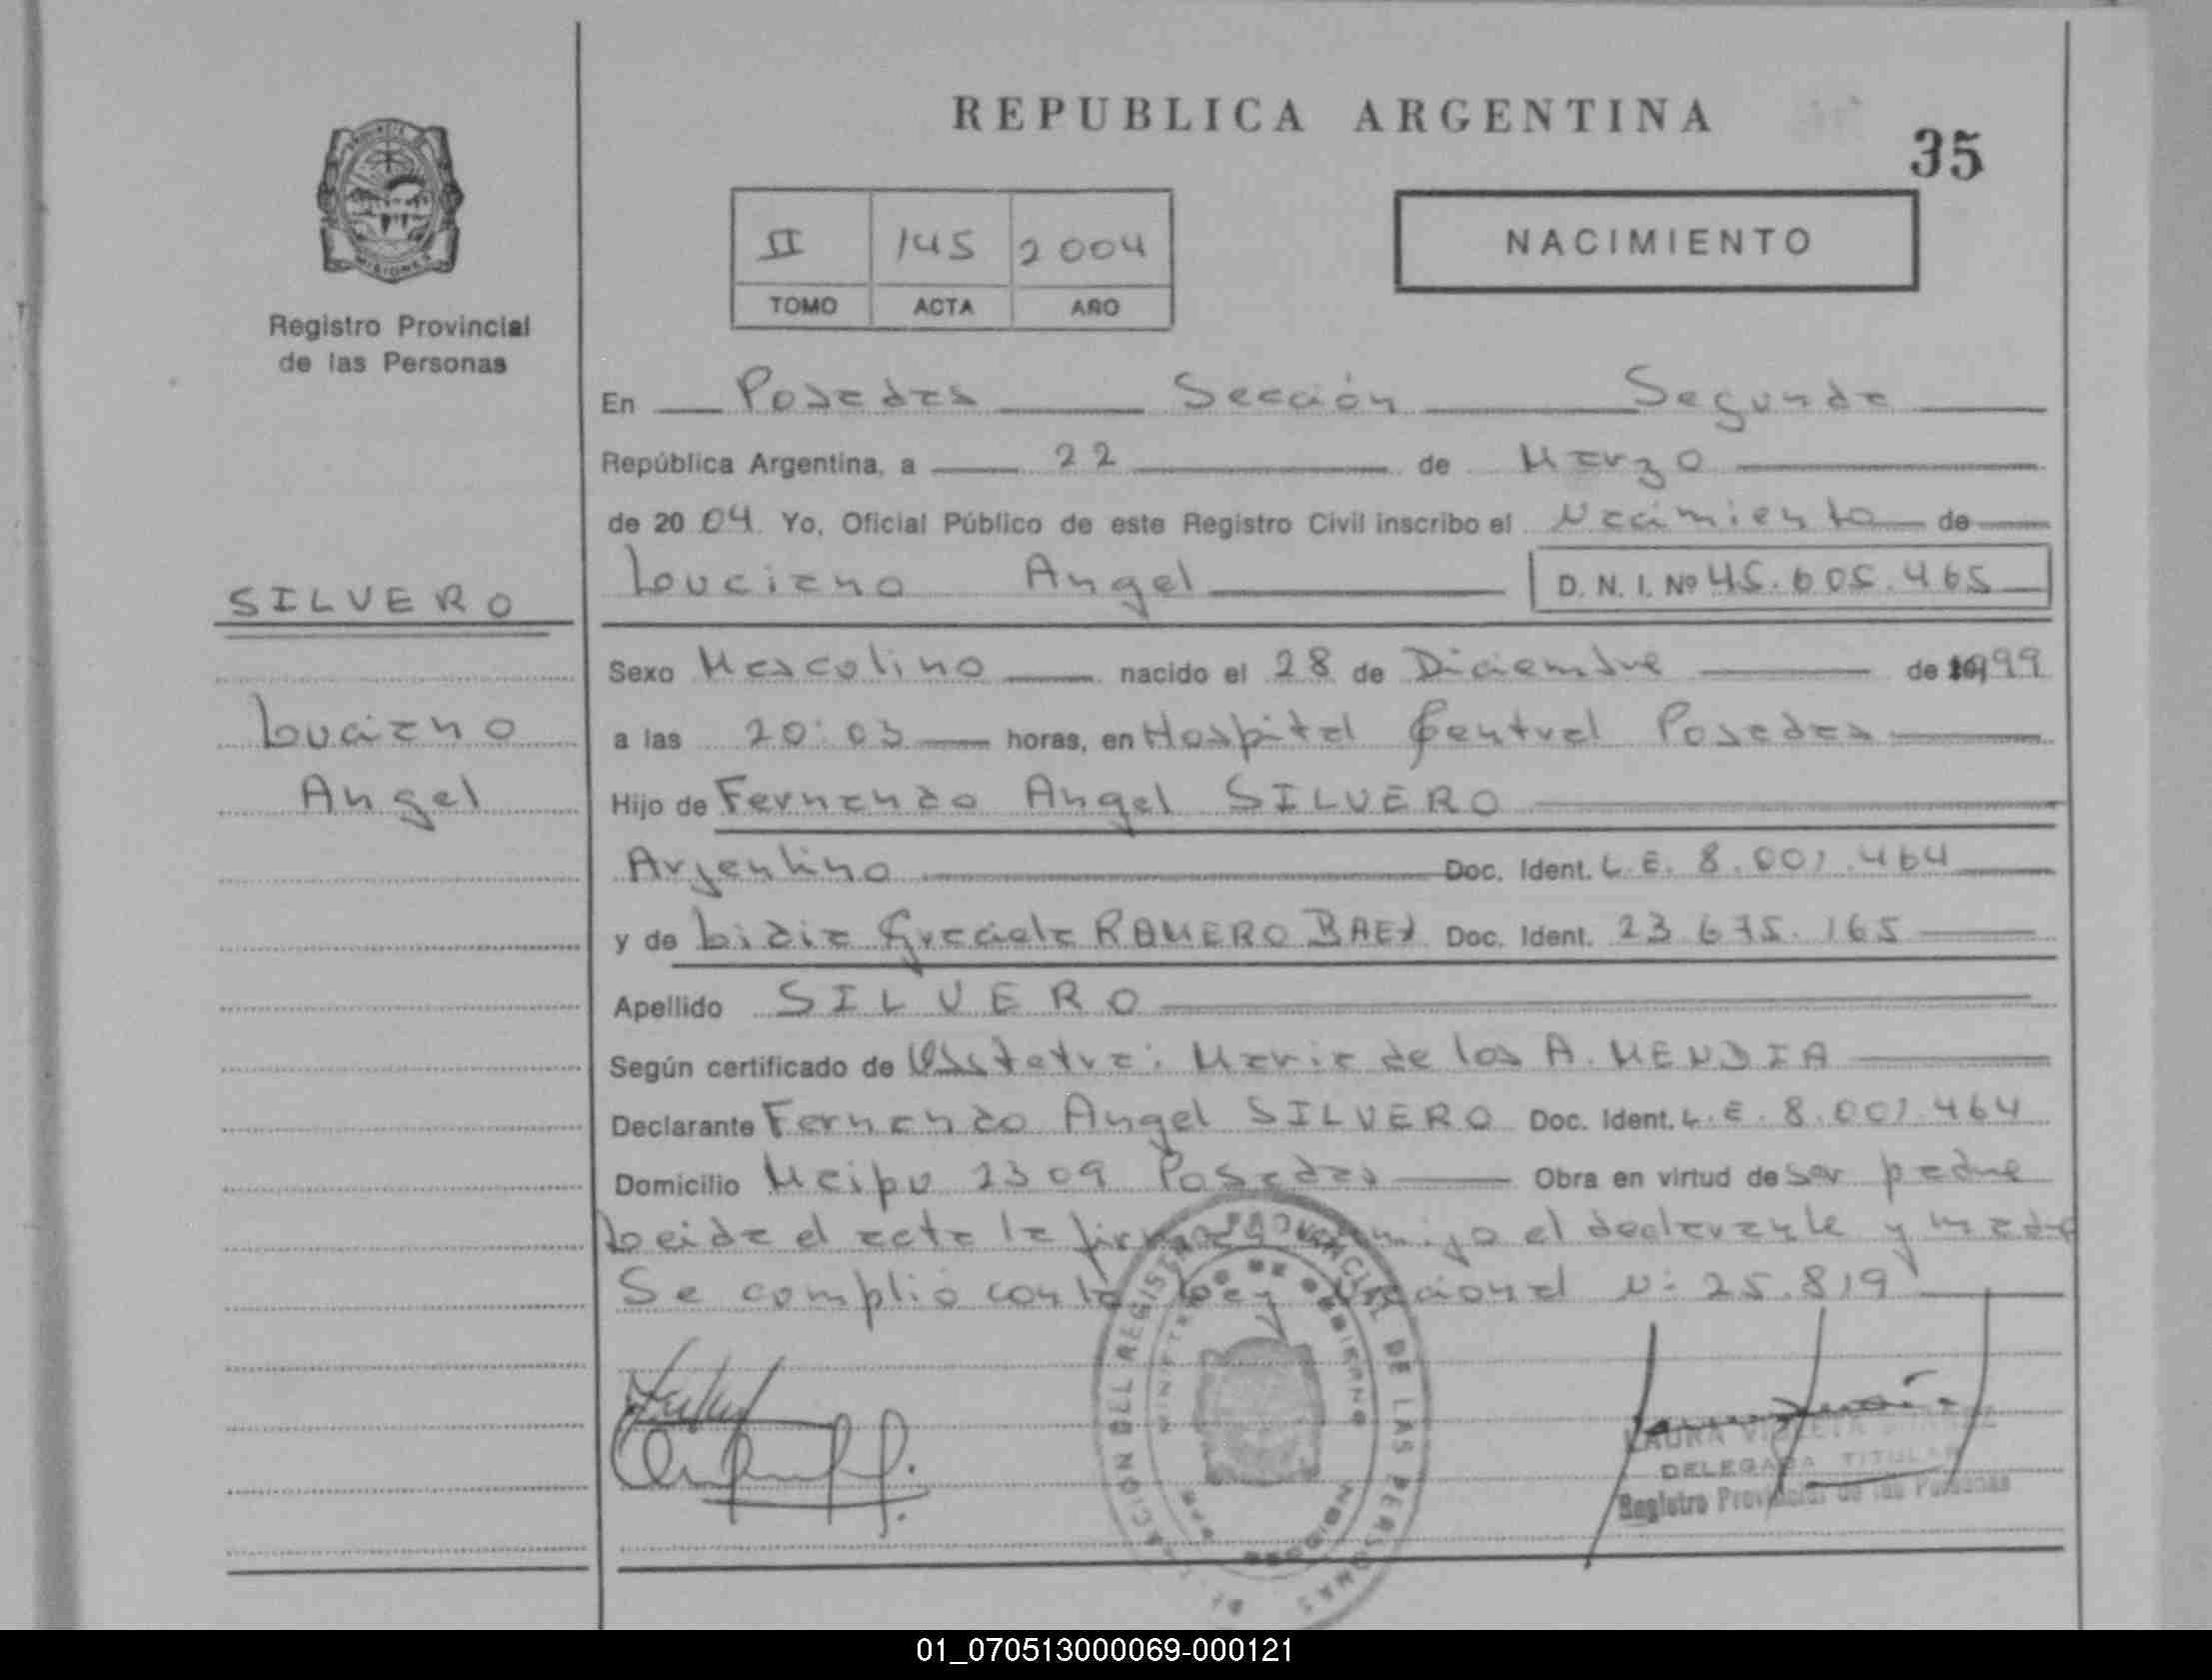 REPUBLICA ARGENTINA
35
II 145 2004
TOMO ACTA AÑO
NACIMIENTO
PROVINCIA DE
MISIONES
Registro Provincial
de las Personas
En Posadas Sección Segunda
República Argentina, a 22 de Marzo
de 2004 Yo, Oficial Público de este Registro Civil inscribo el Nacimiento de
Louciano Angel D. N. I. Nº 45.605.465
SILVERO
Luciano
Angel
Sexo Masculino nacido el 28 de Diciembre de 1999
a las 20:03 horas, en Hospital Central Posadas
Hijo de Fernando Angel SILVERO
Argentino Doc. Ident. L.E. 8.001.464
y de Lidia Graciela ROMERO BAEZ Doc. Ident. 23.675.165
Apellido SILVERO
Según certificado de Obstetra: Maria de los A. MENDIA
Declarante Fernando Angel SILVERO Doc. Ident. L.E. 8.001.464
Domicilio Maipu 2309 Posadas Obra en virtud de ser padre
Leida el acta la firma conmigo el declarante y madre
Se complió con la Ley Nacional Nº 25.819
DEL REGISTRO PROVINCIAL DE LAS PERSONAS
MINISTERIO DE GOBIERNO
MISIONES
LAURA
DELEGADA TITULAR
Registro Provincial de las Personas
01_070513000069-000121